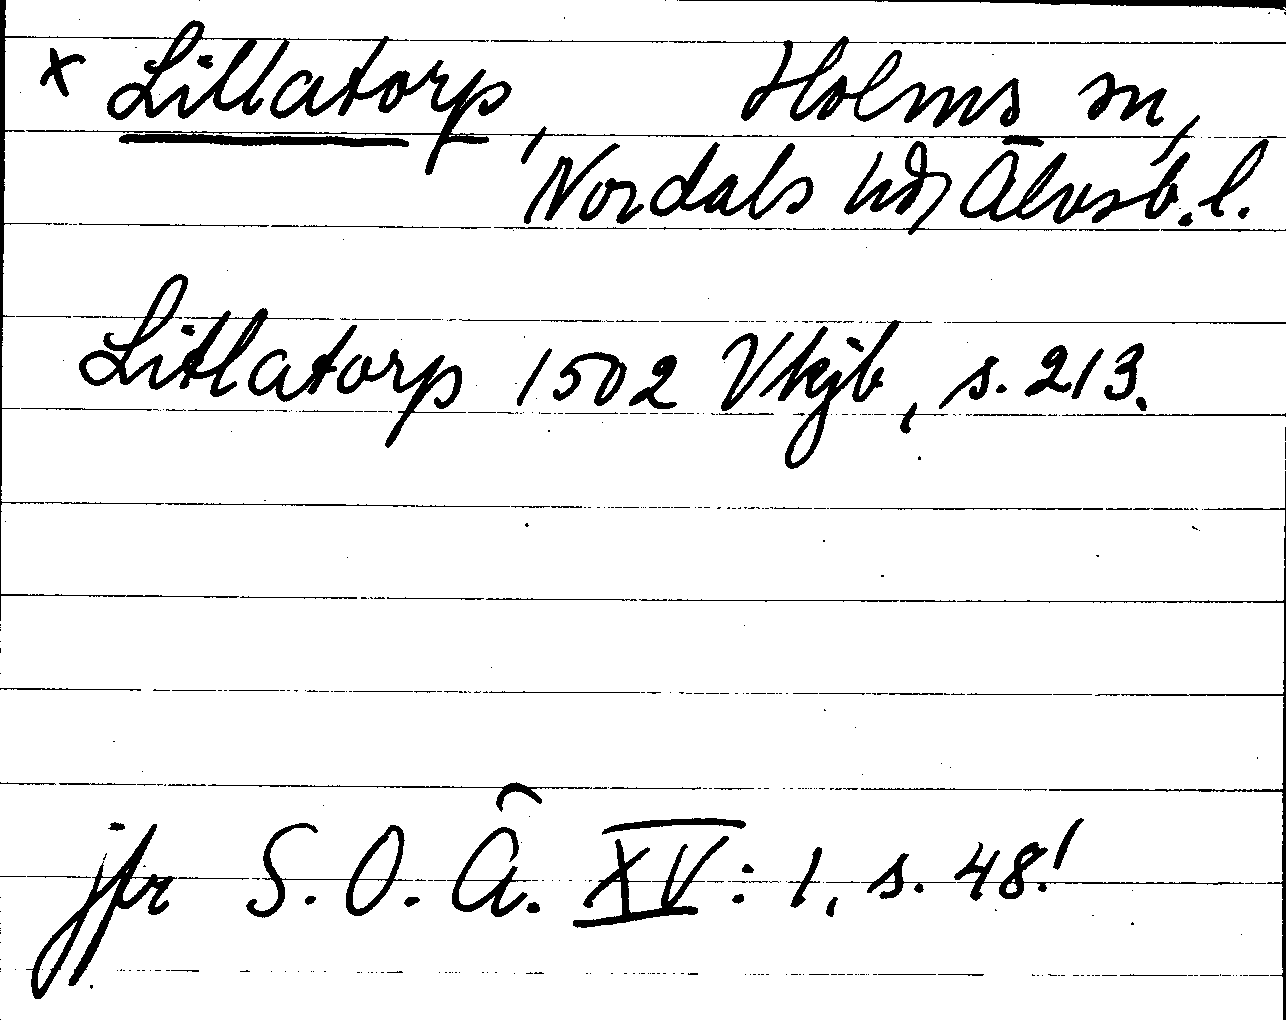 x Lillatorp, Holms sn,
Nordals hd, Älvsb. l.
Litlatorp 1502 Vkjb, s. 213.
jfr S. O. Ä. XV: 1, s. 48!